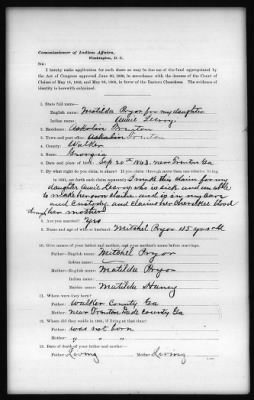 Commissioner of Indian Affairs,
Washington, D. C.
Sir:
I hereby make application for such share as may be due me of the fund appropriated by
the Act of Congress approved June 30, 1906, in accordance with the decrees of the Court of
Claims of May 18, 1905, and May 28, 1906, in favor of the Eastern Cherokees. The evidence of
identity is herewith subjoined.
1. State full name—
English name: Matilda Pryor for my daughter
Indian name:
2. Residence: Trenton
3. Town and post office: Trenton
4. County: Walker
5. State: Georgia
6. Sept 20th 1863 near Trenton Ga
7. By what right do you claim to share? If you claim through more than one relative living
in 1851, set forth each claim separately: I make this claim for my
daughter who is sick and unable
to make her own claim and is in my care
and Custody and claims her Cherokee blood
through her mother
8. Are you married? Yes
9. Name and age of wife or husband: Mitchel Pryor 45 yrs old
10. Give names of your father and mother, and your mother's name before marriage.
Father—English name: Mitchel Pryor
Indian name:
Mother—English name: Matilda Pryor
Indian name:
Maiden name: Matilda Haney
11. Where were they born?
Father: Walker County Ga
Mother: Near Trenton Dade County Ga
12. Where did they reside in 1851, if living at that time?
Father: was not born
Mother: " " "
13. Date of death of your father and mother—
Father: Living Mother: Living